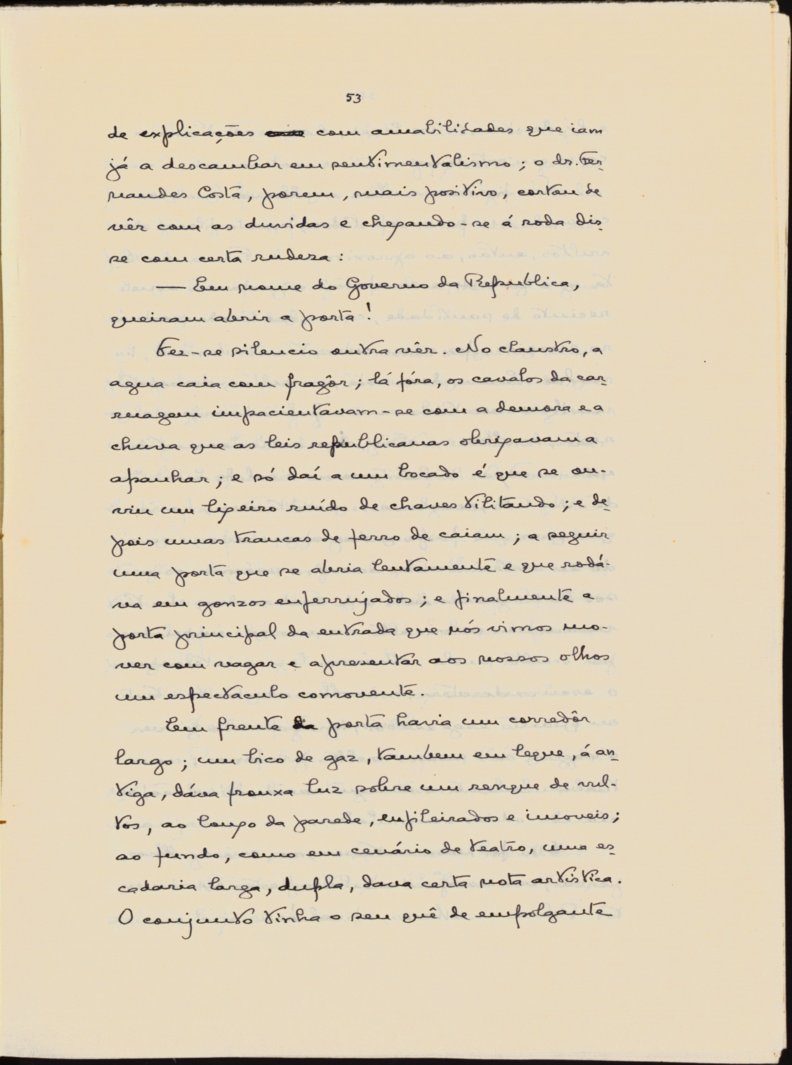 53
de explicações com amabilidades que iam
já a descambar em sentimentalismo; o dr. Fer-
nandes Costa, porem, mais positivo, cortou de
vêr com as duvidas e chegando-se á roda dis-
se com certa rudeza:
— Em nome do Governo da Republica,
queiram abrir a porta!
Fez-se silencio outra vêr. No claustro, a
agua caia com fragôr; lá fóra, os cavalos da car-
ruagem impacientavam-se com a demora e a
chuva que as leis republicanas obrigavam a
apanhar; e só daí a um bocado é que se ou-
viu um ligeiro ruído de chaves tilitando; e de-
pois umas trancas de ferro de caiam; a seguir
uma porta que se abria lentamente e que rodá-
va em gonzos enferrujados; e finalmente a
porta principal da entrada que nós vimos mo-
ver com vagar e apresentar aos nossos olhos
um espectaculo comovente.
Em frente da porta havia um corredôr
largo; um bico de gaz, tambem em leque, á an-
tiga, dáva frouxa luz sobre um renque de vul-
tos, ao longo da parede, enfileirados e imoveis;
ao fundo, como em cenário de teatro, uma es-
cadaria larga, dupla, dava certa nota artística.
O conjunto tinha o seu quê de empolgante